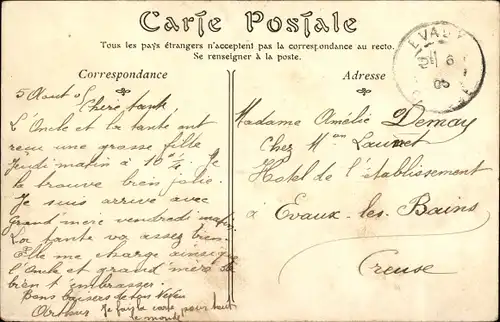 Carte Postale
Tous les pays étrangers n'acceptent pas la correspondance au recto.
Se renseigner à la poste.
Correspondance
Adresse
EVAUX
6
05
5 Aout 05
Chère tante,
L'Oncle et la tante ont
reçu une grosse fille
Jeudi matin à 10 h 1/2. Je
la trouve bien jolie.
Je suis arrivé avec
Grand'mère vendredi matin.
La tante va assez bien.
Elle me charge ainsi que
l'Oncle et grand'mère de
bien t'embrasser
Bons baisers de ton neveu
Arthur
Je fais la carte pour tout
le monde
Madame Amélie Demay
Chez Mme Lauvet
Hotel de l'établissement
à Evaux-les-Bains
Creuse